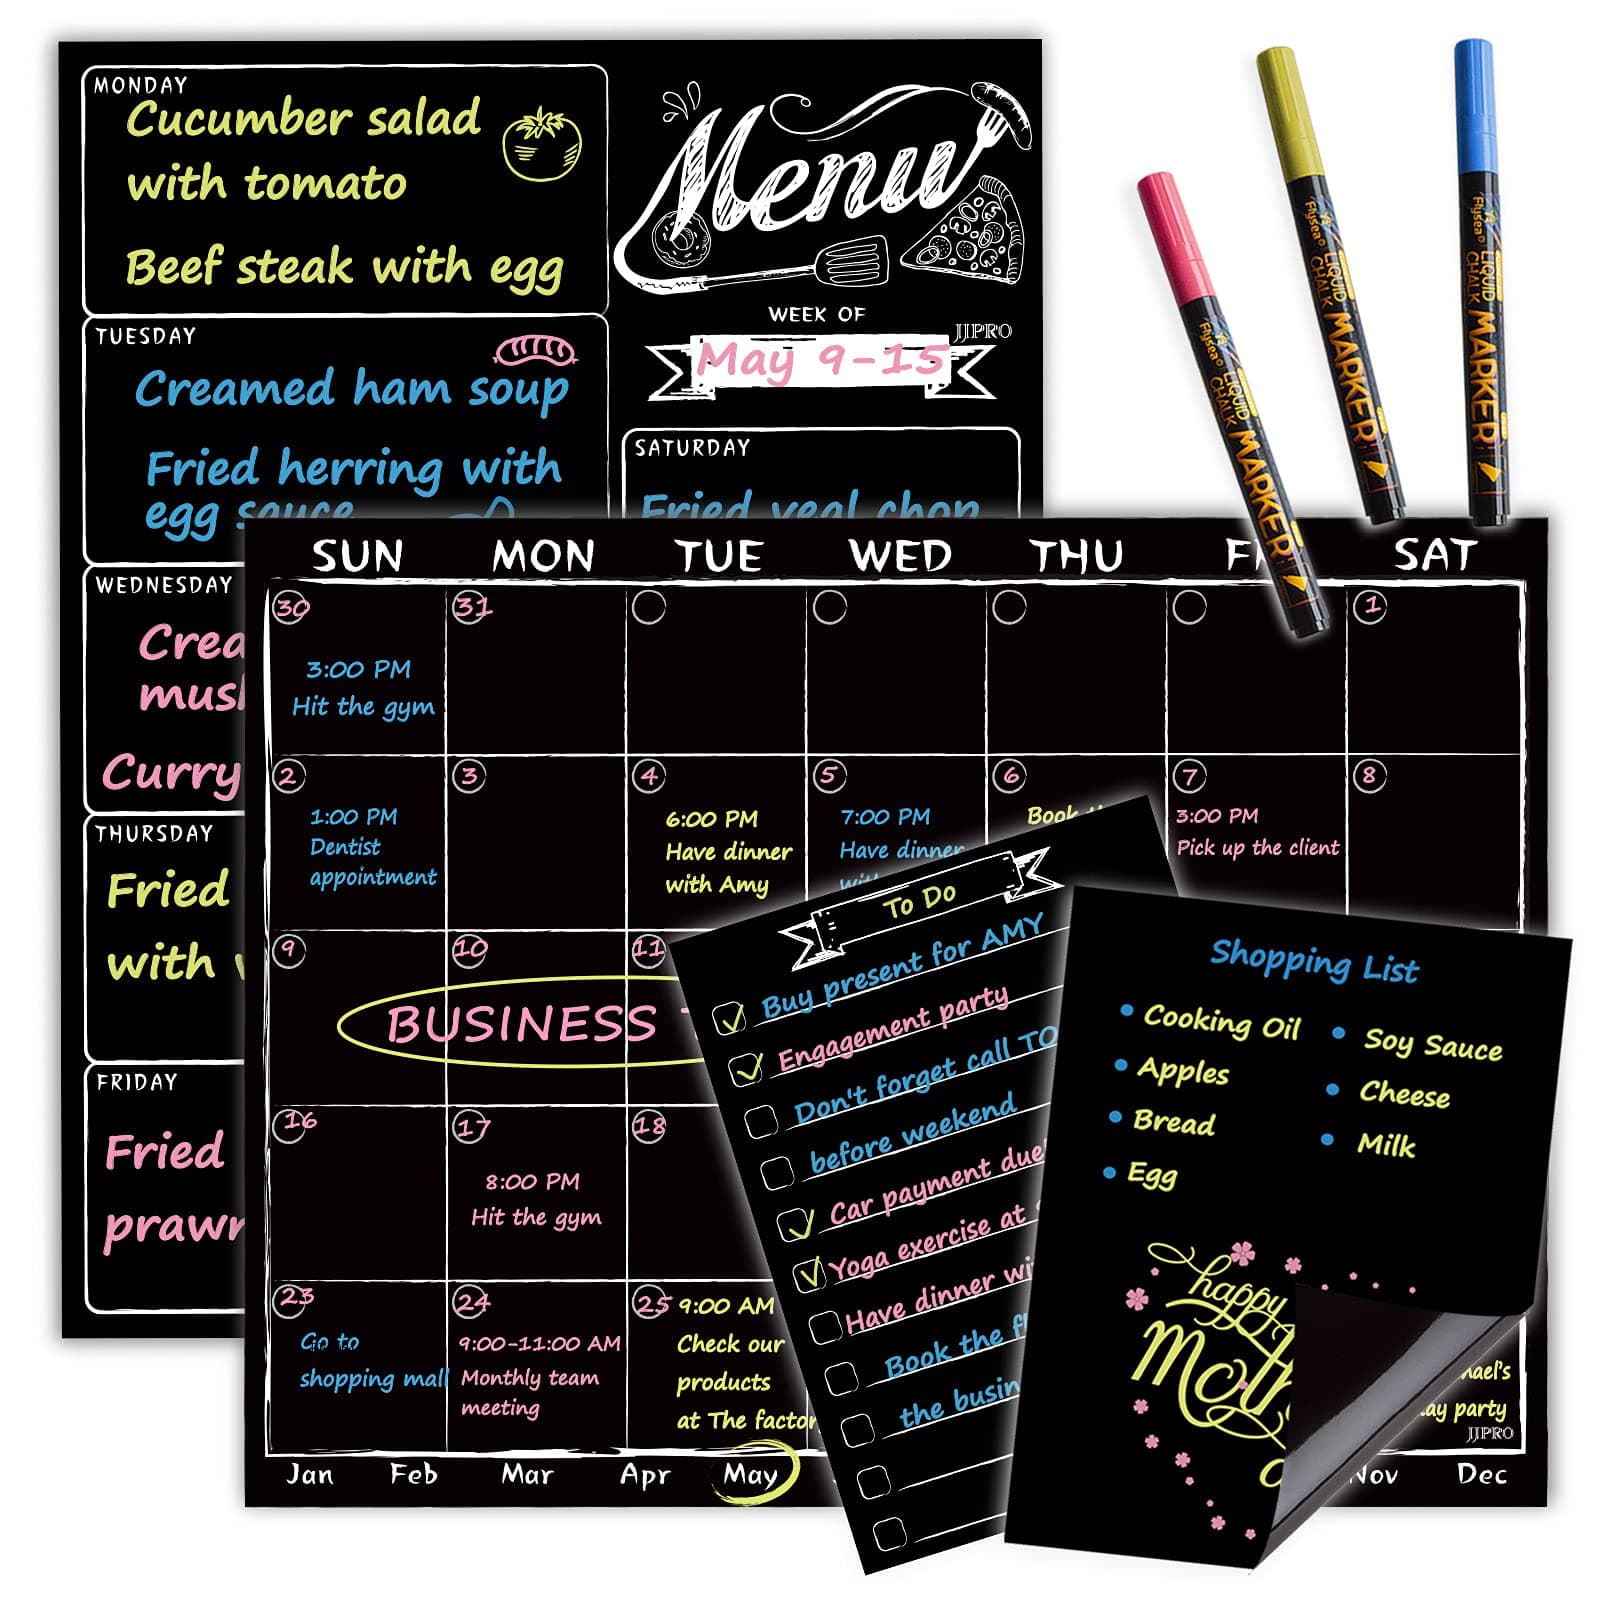 MONDAY
Cucumber salad
with tomato
Beef steak with egg
TUESDAY
Creamed ham soup
Fried herring with
egg sauce
WEDNESDAY
Curry
THURSDAY
Fried
with
FRIDAY
Fried
Menu
WEEK OF
JJPRO
May 9-15
SATURDAY
Fried veal chop
Flysea LIQUID CHALK MARKER
Flysea LIQUID CHALK MARKER
Flysea LIQUID CHALK MARKER
SUN MON TUE WED THU SAT
30 31 1
3:00 PM
Hit the gym
2 3 4 5 6 7 8
1:00 PM
Dentist
appointment
6:00 PM
Have dinner
with Amy
7:00 PM
Have dinner
with
Book
3:00 PM
Pick up the client
9 10 11
BUSINESS
16 17 18
8:00 PM
Hit the gym
23 24 25
Go to
shopping mall
9:00-11:00 AM
Monthly team
meeting
9:00 AM
Check our
products
at The factor
party
JJPRO
Jan Feb Mar Apr May Nov Dec
To Do
Buy present for AMY
Engagement party
Don't forget call TO
before weekend
Car payment due
Yoga exercise at
Have dinner
Book the
the
Shopping List
Cooking Oil
Apples
Bread
Egg
Soy Sauce
Cheese
Milk
happy